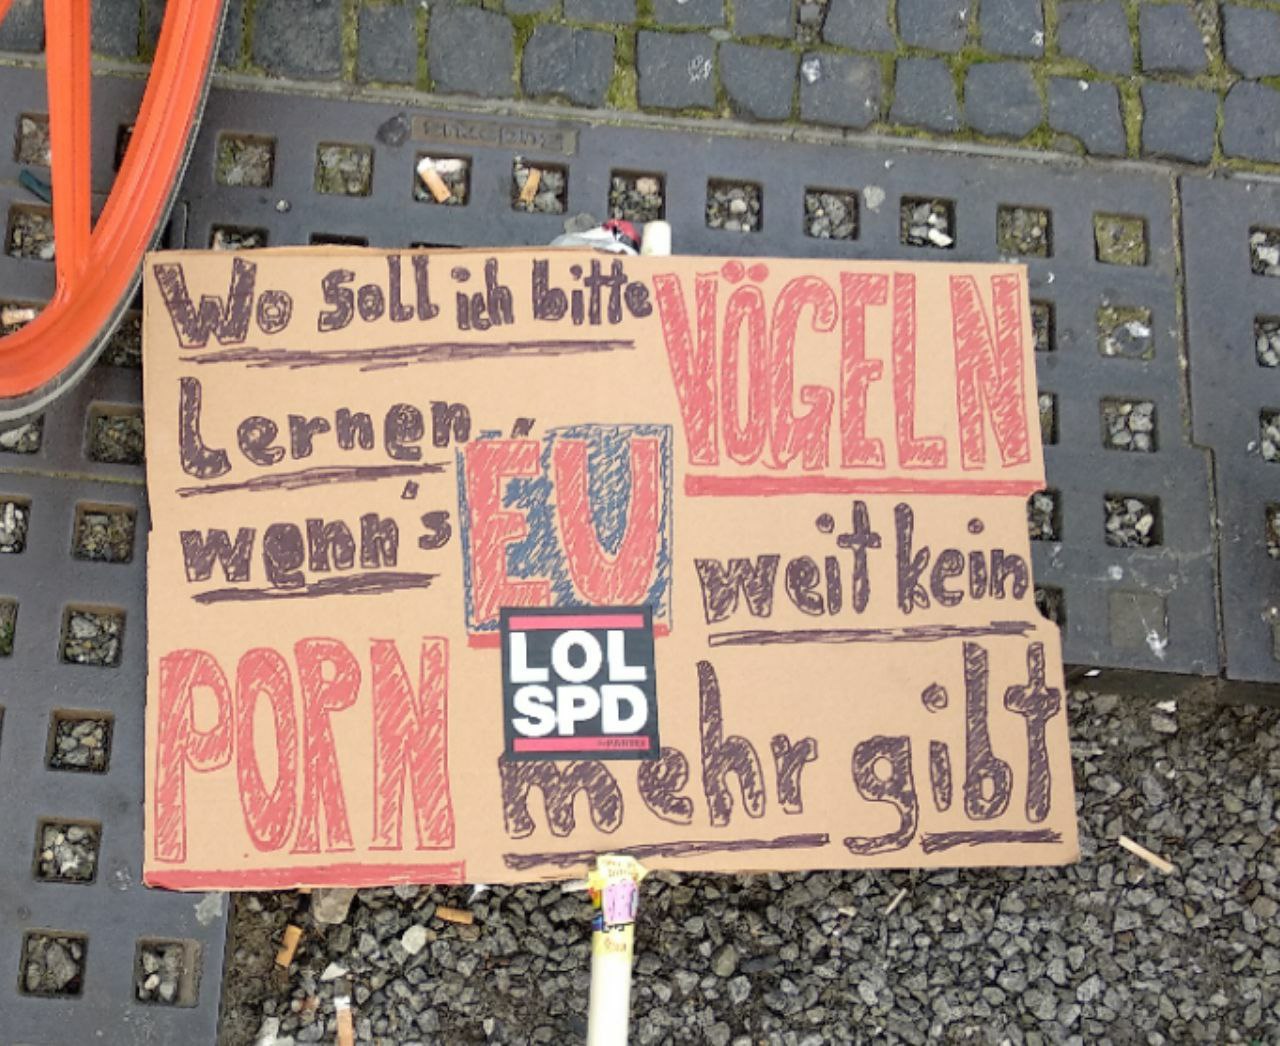 Wo soll ich bitte VÖGELN
Lernen
wenn's EU weit kein
PORN mehr gibt
LOL
SPD